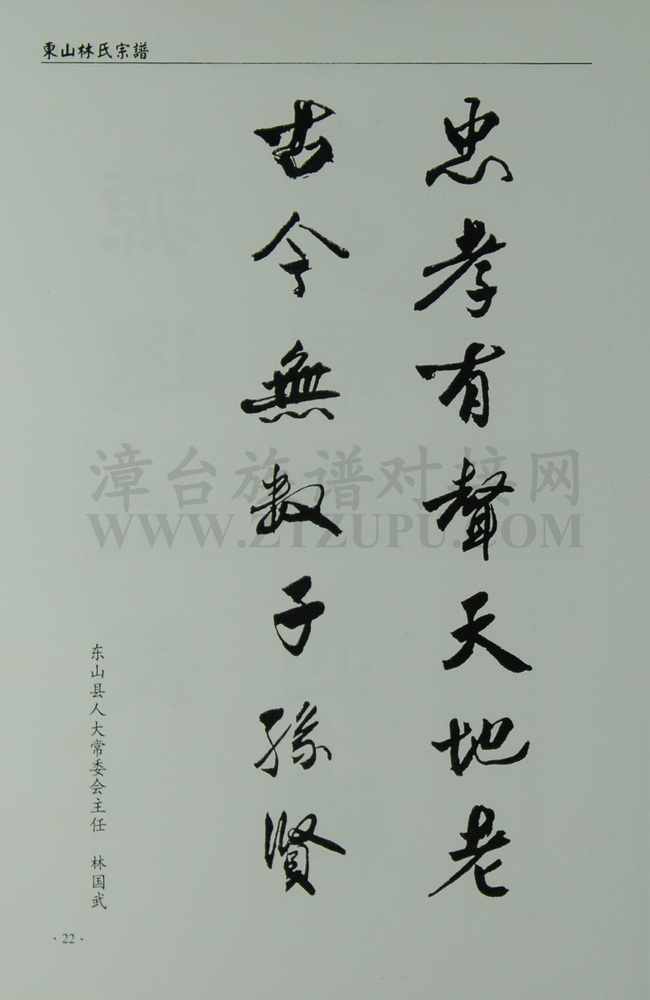 東山林氏宗譜
忠孝有聲天地老
古今無数子孫賢
东山县人大常委会主任 林国武
漳台族谱对接网
WWW.ZTZUPU.COM
·22·